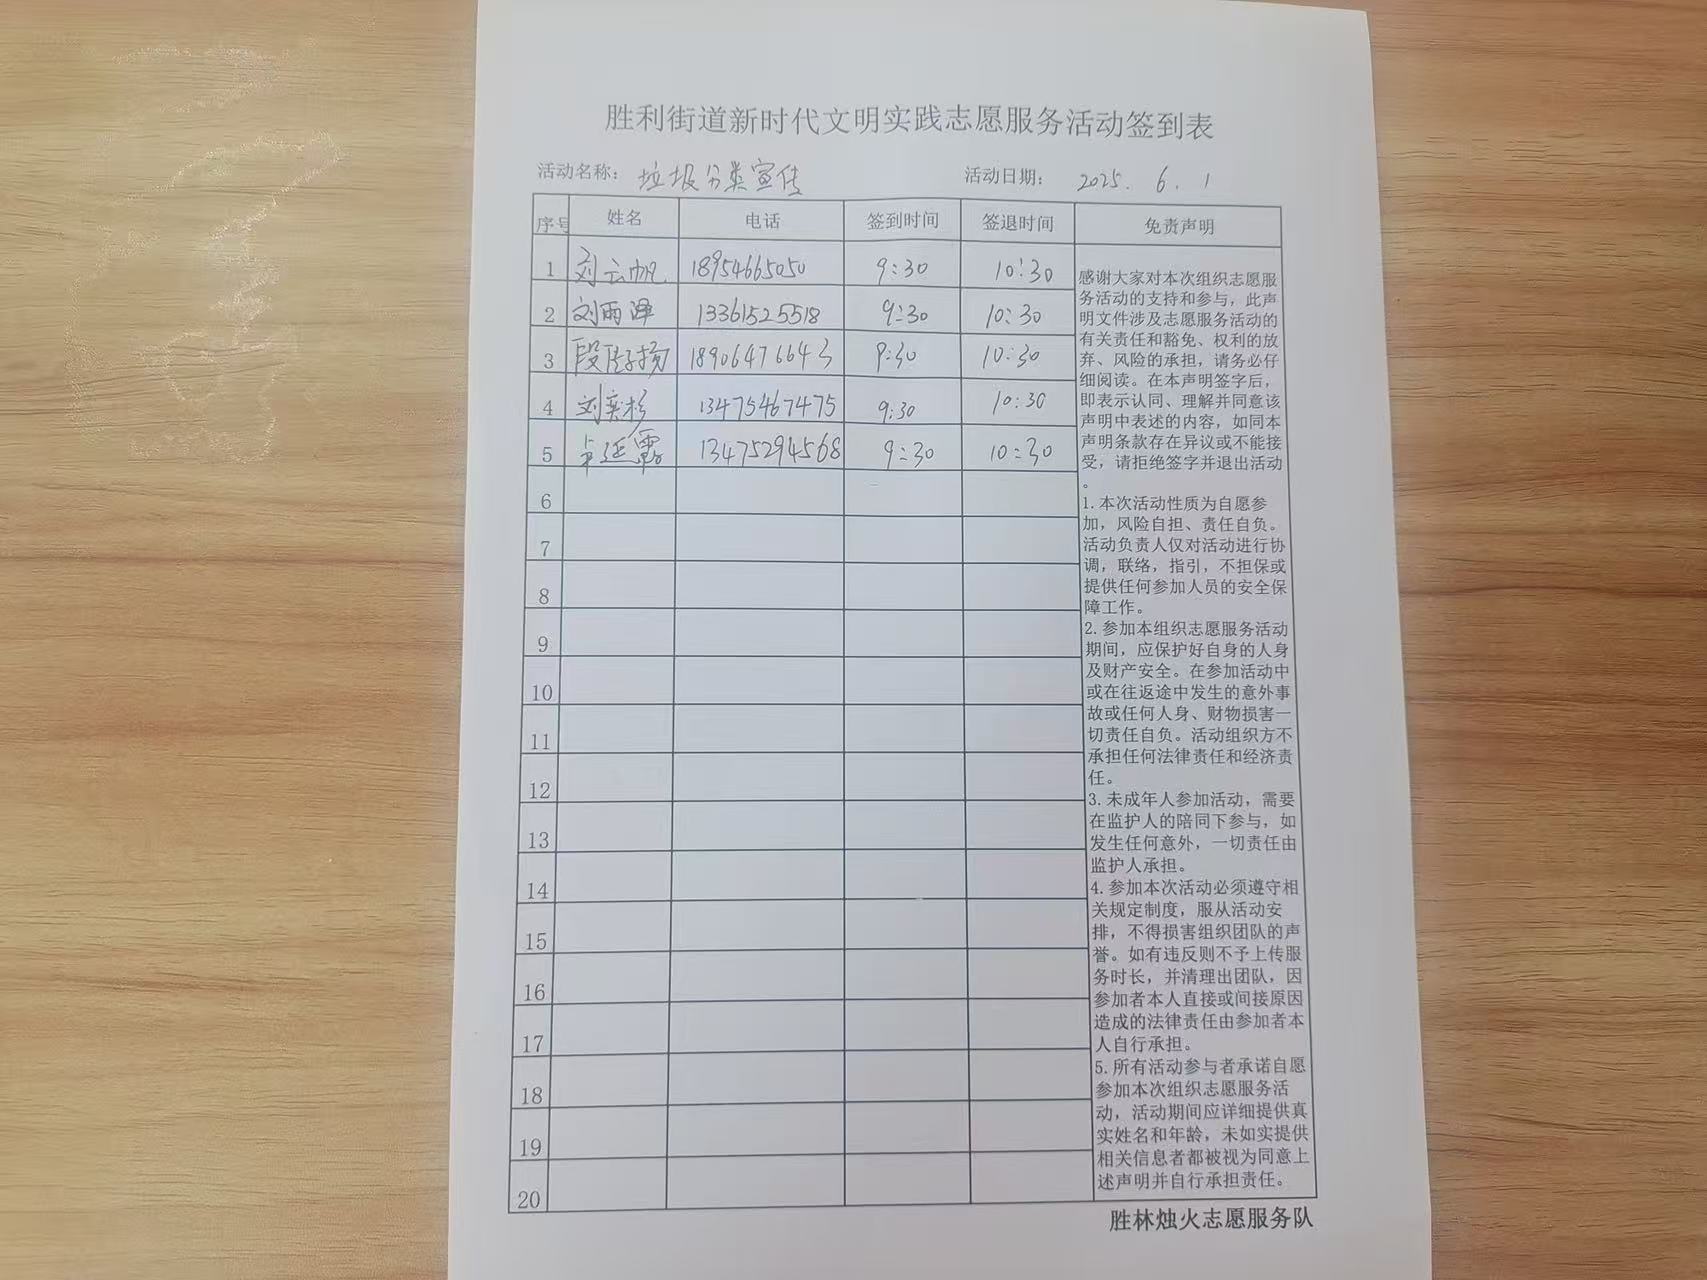 胜利街道新时代文明实践志愿服务活动签到表
活动名称： 垃圾分类宣传 活动日期： 2025. 6. 1
序号 姓名 电话 签到时间 签退时间 免责声明
1 刘云帆 18954665050 9:30 10:30
2 刘雨泽 13361525518 9:30 10:30
3 18906476643 9:30 10:30
4 刘奕杉 13475467475 9:30 10:30
5 13475294568 9:30 10:30
6
7
8
9
10
11
12
13
14
15
16
17
18
19
20
感谢大家对本次组织志愿服
务活动的支持和参与，此声
明文件涉及志愿服务活动的
有关责任和豁免、权利的放
弃、风险的承担，请务必仔
细阅读。在本声明签字后，
即表示认同、理解并同意该
声明中表述的内容，如同本
声明条款存在异议或不能接
受，请拒绝签字并退出活动
。
1. 本次活动性质为自愿参
加，风险自担、责任自负。
活动负责人仅对活动进行协
调，联络，指引，不担保或
提供任何参加人员的安全保
障工作。
2. 参加本组织志愿服务活动
期间，应保护好自身的人身
及财产安全。在参加活动中
或在往返途中发生的意外事
故或任何人身、财物损害一
切责任自负。活动组织方不
承担任何法律责任和经济责
任。
3. 未成年人参加活动，需要
在监护人的陪同下参与，如
发生任何意外，一切责任由
监护人承担。
4. 参加本次活动必须遵守相
关规定制度，服从活动安
排，不得损害组织团队的声
誉。如有违反则不予上传服
务时长，并清理出团队，因
参加者本人直接或间接原因
造成的法律责任由参加者本
人自行承担。
5. 所有活动参与者承诺自愿
参加本次组织志愿服务活
动，活动期间应详细提供真
实姓名和年龄，未如实提供
相关信息者都被视为同意上
述声明并自行承担责任。
胜林烛火志愿服务队